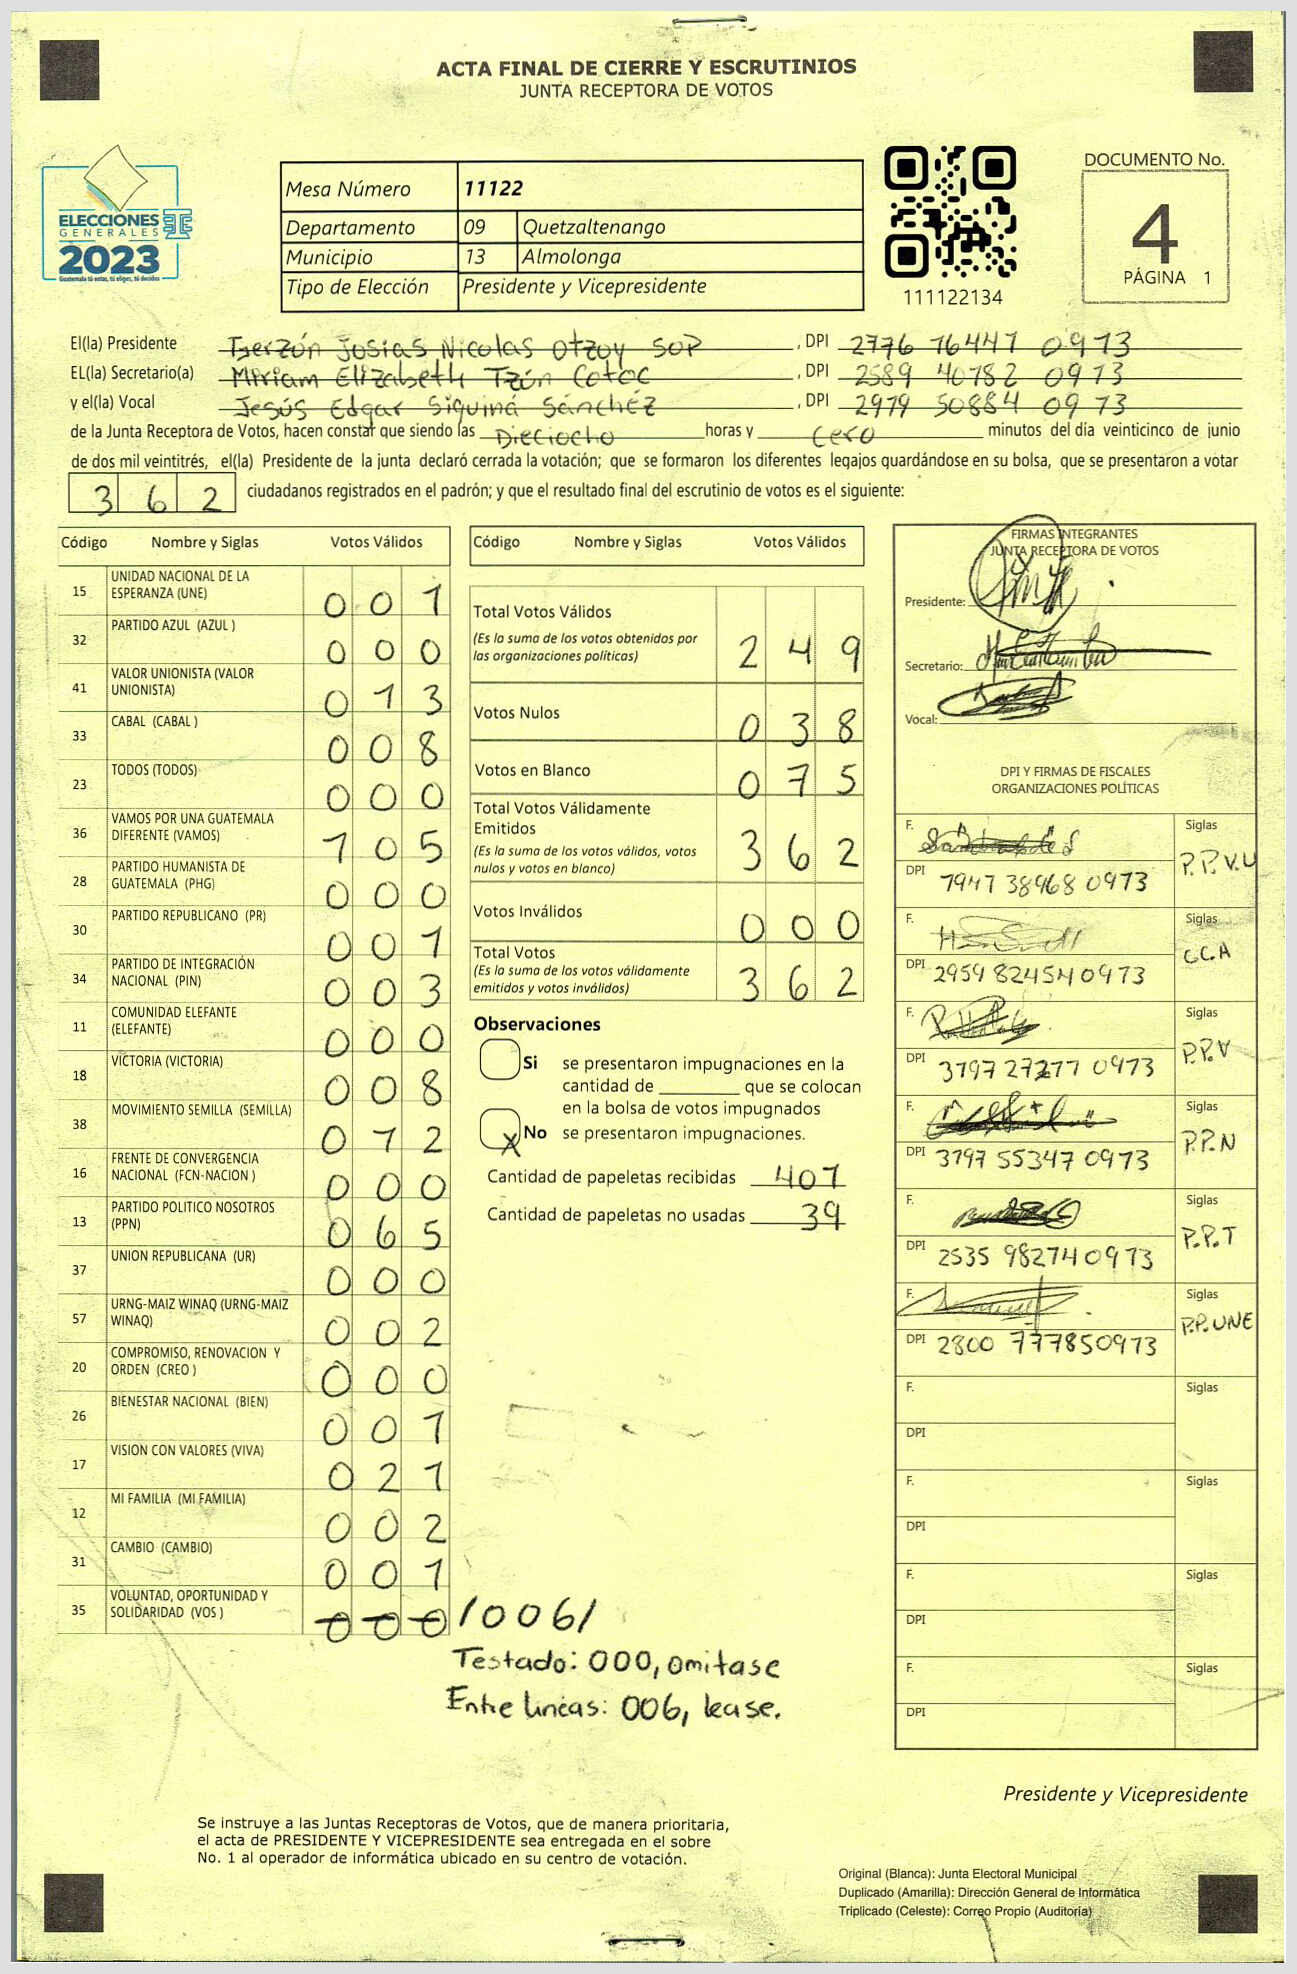 ACTA FINAL DE CIERRE Y ESCRUTINIOS
JUNTA RECEPTORA DE VOTOS
ELECCIONES
GENERALES
2023
Guatemala tú votas, tú eliges, tú decides
Mesa Número 11122
Departamento 09 Quetzaltenango
Municipio 13 Almolonga
Tipo de Elección Presidente y Vicepresidente
111122134
DOCUMENTO No.
4
PÁGINA 1
El(la) Presidente Gerzón Josias Nicolas Otzoy SOP, DPI 2776 76447 0973
EL(la) Secretario(a) Miriam Elizabeth Tzún Cotoc, DPI 2589 40782 0973
y el(la) Vocal Jesús Edgar Siquiná Sánchéz, DPI 2979 50884 0973
de la Junta Receptora de Votos, hacen constar que siendo las Dieciocho horas y Cero minutos del día veinticinco de junio
de dos mil veintitrés, el(la) Presidente de la junta declaró cerrada la votación; que se formaron los diferentes legajos guardándose en su bolsa, que se presentaron a votar
362 ciudadanos registrados en el padrón; y que el resultado final del escrutinio de votos es el siguiente:
Código Nombre y Siglas Votos Válidos
15 UNIDAD NACIONAL DE LA ESPERANZA (UNE) 001
32 PARTIDO AZUL (AZUL ) 000
41 VALOR UNIONISTA (VALOR UNIONISTA) 013
33 CABAL (CABAL ) 008
23 TODOS (TODOS) 000
36 VAMOS POR UNA GUATEMALA DIFERENTE (VAMOS) 105
28 PARTIDO HUMANISTA DE GUATEMALA (PHG) 000
30 PARTIDO REPUBLICANO (PR) 001
34 PARTIDO DE INTEGRACIÓN NACIONAL (PIN) 003
11 COMUNIDAD ELEFANTE (ELEFANTE) 000
18 VICTORIA (VICTORIA) 008
38 MOVIMIENTO SEMILLA (SEMILLA) 012
16 FRENTE DE CONVERGENCIA NACIONAL (FCN-NACION ) 000
13 PARTIDO POLITICO NOSOTROS (PPN) 065
37 UNION REPUBLICANA (UR) 000
57 URNG-MAIZ WINAQ (URNG-MAIZ WINAQ) 002
20 COMPROMISO, RENOVACION Y ORDEN (CREO ) 000
26 BIENESTAR NACIONAL (BIEN) 001
17 VISION CON VALORES (VIVA) 021
12 MI FAMILIA (MI FAMILIA) 002
31 CAMBIO (CAMBIO) 001
35 VOLUNTAD, OPORTUNIDAD Y SOLIDARIDAD (VOS ) 000 /006/
Testado: 000, omitase
Entre lineas: 006, lease.
Código Nombre y Siglas Votos Válidos
Total Votos Válidos 249
(Es la suma de los votos obtenidos por
las organizaciones políticas)
Votos Nulos 038
Votos en Blanco 075
Total Votos Válidamente
Emitidos 362
(Es la suma de los votos válidos, votos
nulos y votos en blanco)
Votos Inválidos 000
Total Votos 362
(Es la suma de los votos válidamente
emitidos y votos inválidos)
Observaciones
Si se presentaron impugnaciones en la
cantidad de ________ que se colocan
en la bolsa de votos impugnados
X No se presentaron impugnaciones.
Cantidad de papeletas recibidas 401
Cantidad de papeletas no usadas 39
FIRMAS INTEGRANTES
JUNTA RECEPTORA DE VOTOS
Presidente:
Secretario:
Vocal:
DPI Y FIRMAS DE FISCALES
ORGANIZACIONES POLÍTICAS
F. Siglas P.P.V.U
DPI 7947 38968 0973
F. Siglas C.C.A
DPI 2959 82454 0973
F. Siglas P.P.V
DPI 3797 27277 0973
F. Siglas P.P.N
DPI 3797 55347 0973
F. Siglas P.P.T
DPI 2535 98274 0973
F. Siglas P.P.UNE
DPI 2800 77785 0973
F. Siglas
DPI
F. Siglas
DPI
F. Siglas
DPI
F. Siglas
DPI
Presidente y Vicepresidente
Se instruye a las Juntas Receptoras de Votos, que de manera prioritaria,
el acta de PRESIDENTE Y VICEPRESIDENTE sea entregada en el sobre
No. 1 al operador de informática ubicado en su centro de votación.
Original (Blanca): Junta Electoral Municipal
Duplicado (Amarilla): Dirección General de Informática
Triplicado (Celeste): Correo Propio (Auditoría)